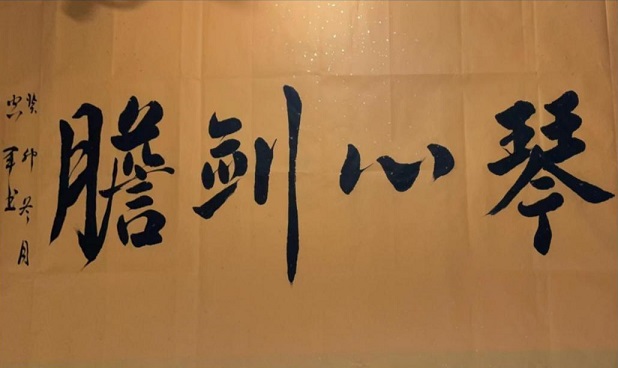 琴心剑膽
癸卯冬月
军书